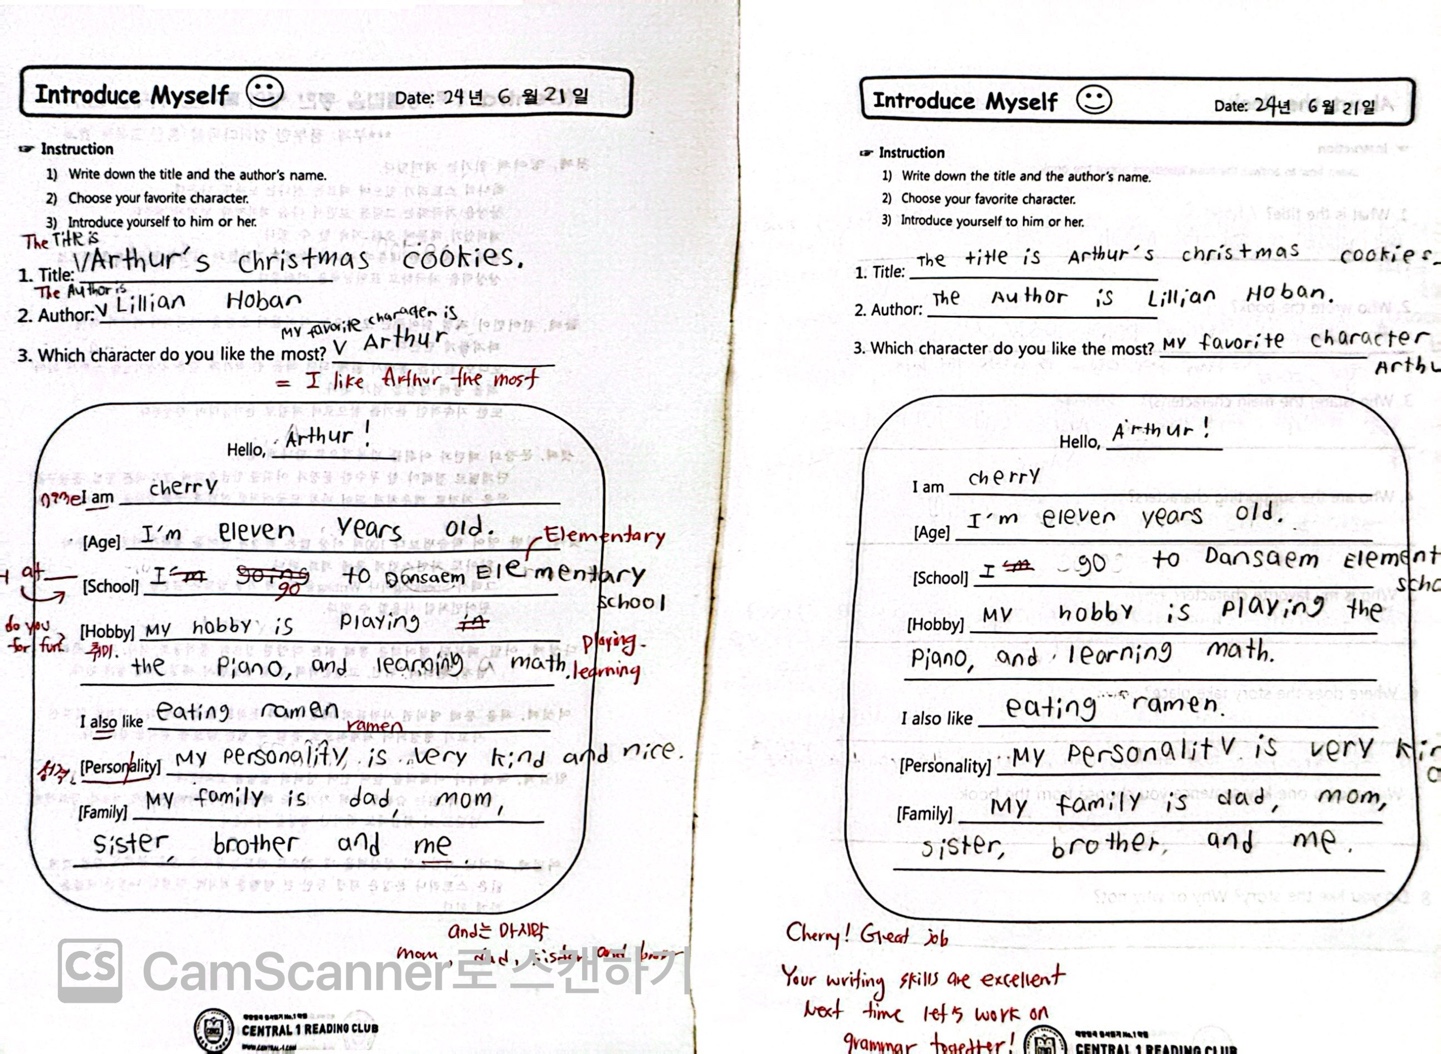 Introduce Myself
Date: 24년 6월 21일
☞ Instruction
1) Write down the title and the author's name.
2) Choose your favorite character.
3) Introduce yourself to him or her.
The Title is
1. Title: VArthur's christmas cookies.
The Author is
2. Author: V Lillian Hoban
My favorite character is
3. Which character do you like the most? V Arthur
= I like Arthur the most
Hello, Arthur!
이름 I am cherry
[Age] I'm eleven years old.
Elementary
at
[School] I'm going to Dansaem Elementary
go
school
do you
for fun?
[Hobby] My hobby is playing in
취미.
playing.
the piano, and learning a math.
learning
I also like eating ramen
ramen
성격. [Personality] My personality is very kind and nice.
[Family] My family is dad, mom,
sister, brother and me.
and는 마지막
mom, dad, sister and bro
CS CamScanner로 스캔하기
CENTRAL 1 READING CLUB
www.central-1.com
Introduce Myself
Date: 24년 6월 21일
☞ Instruction
1) Write down the title and the author's name.
2) Choose your favorite character.
3) Introduce yourself to him or her.
1. Title: The title is Arthur's christmas cookies.
2. Author: The Author is Lillian Hoban.
3. Which character do you like the most? My favorite character
Arthu
Hello, Arthur!
I am cherry
[Age] I'm eleven years old.
[School] I'm go to Dansaem Element
scho
[Hobby] My hobby is playing the
piano, and learning math.
I also like eating ramen.
[Personality] My personality is very kin
a
[Family] My family is dad, mom,
sister, brother, and me.
Cherry! Great job
Your writing skills are excellent
Next time let's work on
grammar together!
CENTRAL 1 READING CLUB